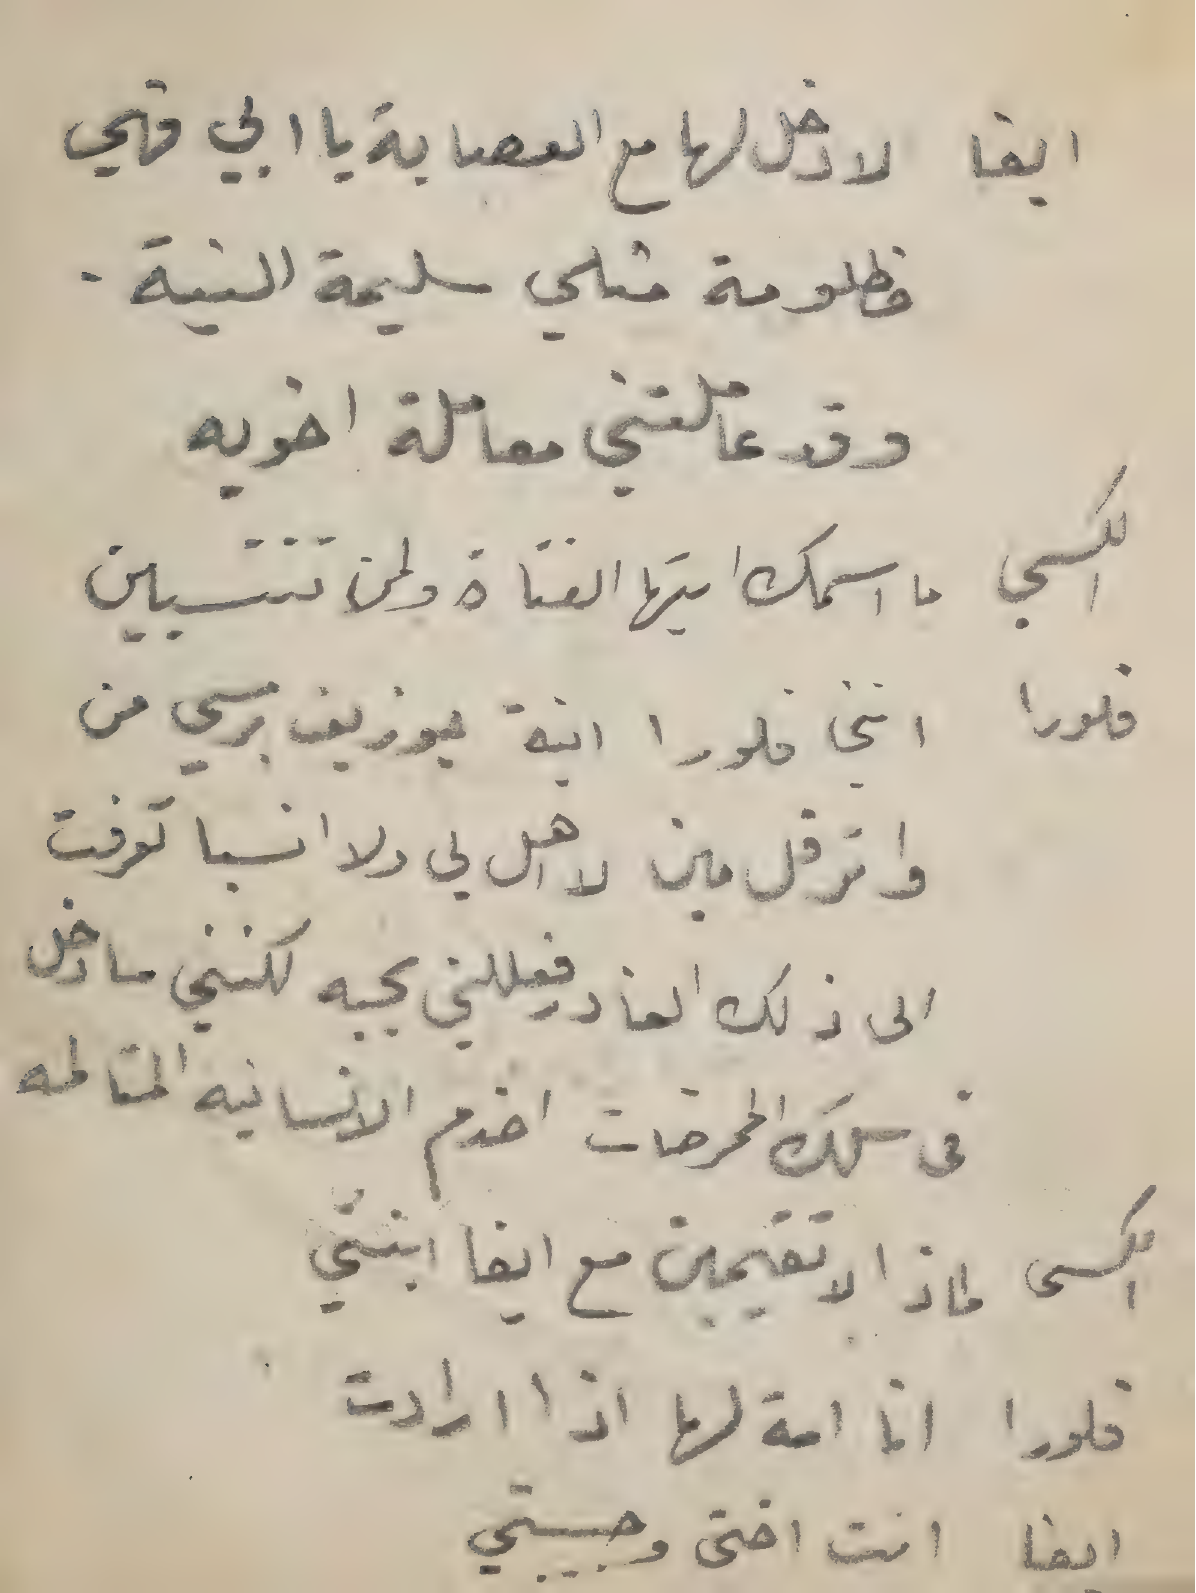 ايفا لا دخل لها مع العصابة يا ابي فهي
مظلومة مثلي سليمة النية .
وقد عاملتني معاملة اخويه
الكسي ما اسمك ايتها الفتاة ولمن تنتسبين
فلورا انني فلورا ابنة جوزيف برسي من
واترفل مين لا اهل لي ولا انسبا تعرفت
الى ذلك الغادر فعللني بحبه لكنني سادخل
في سلك الممرضات اخدم الانسانيه المتالمه
الكسي لماذا لا تقيمين مع ايفا ابنتي
فلورا انا امة لها اذا ارادت
ايفا انت اختي وحبيبتي